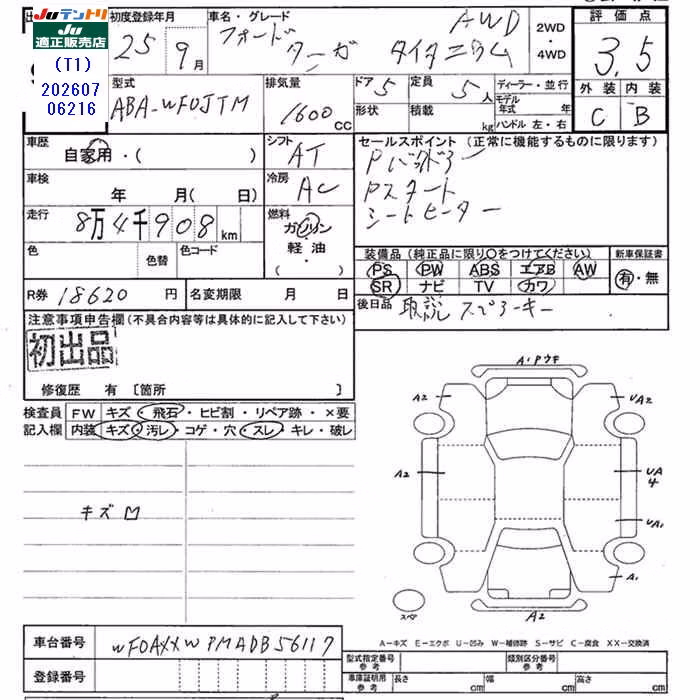 Juテントリ
Ju適正販売店
(T1)
202607
06216
初度登録年月
25 9月
車名・グレード
フォード クーガ AWD タイタニウム
2WD・4WD
評価点
3.5
外装 内装
C B
型式
ABA-WF0JTM
排気量
1600cc
ドア 5
形状
定員 5人
積載 kg
ディーラー・並行
モデル年式 年
ハンドル 左・右
車歴
自家用・( )
シフト
AT
車検
年 月(日)
冷房
AC
走行
8万4千908km
燃料
ガソリン
軽油・( )
色
色替
色コード
R券 18620円
名変期限 月 日
セールスポイント(正常に機能するものに限ります)
Pバックドアー
Pスタート
シートヒーター
装備品(純正品に限り○をつけてください)
PS PW ABS エアB AW
SR ナビ TV カワ
新車保証書
有・無
後日品 取説 スペアーキー
注意事項申告欄(不具合内容等は具体的に記入して下さい)
初出品
修復歴 有〔箇所 〕
検査員記入欄
FW キズ・飛石・ヒビ割・リペア跡・×要
内装 キズ・汚レ・コゲ・穴・スレ・キレ・破レ
キズ
A・Pウキ
A2
UA2
A2
UA4
UA1
A1
スペア
A2
A－キズ E－エクボ U－凹み W－補修跡 S－サビ C－腐食 XX－交換済
車台番号 WF0AXXWPMADB56117
登録番号
型式指定番号 参考
類別区分番号 参考
車庫証明用 参考
長さ cm 幅 cm 高さ cm